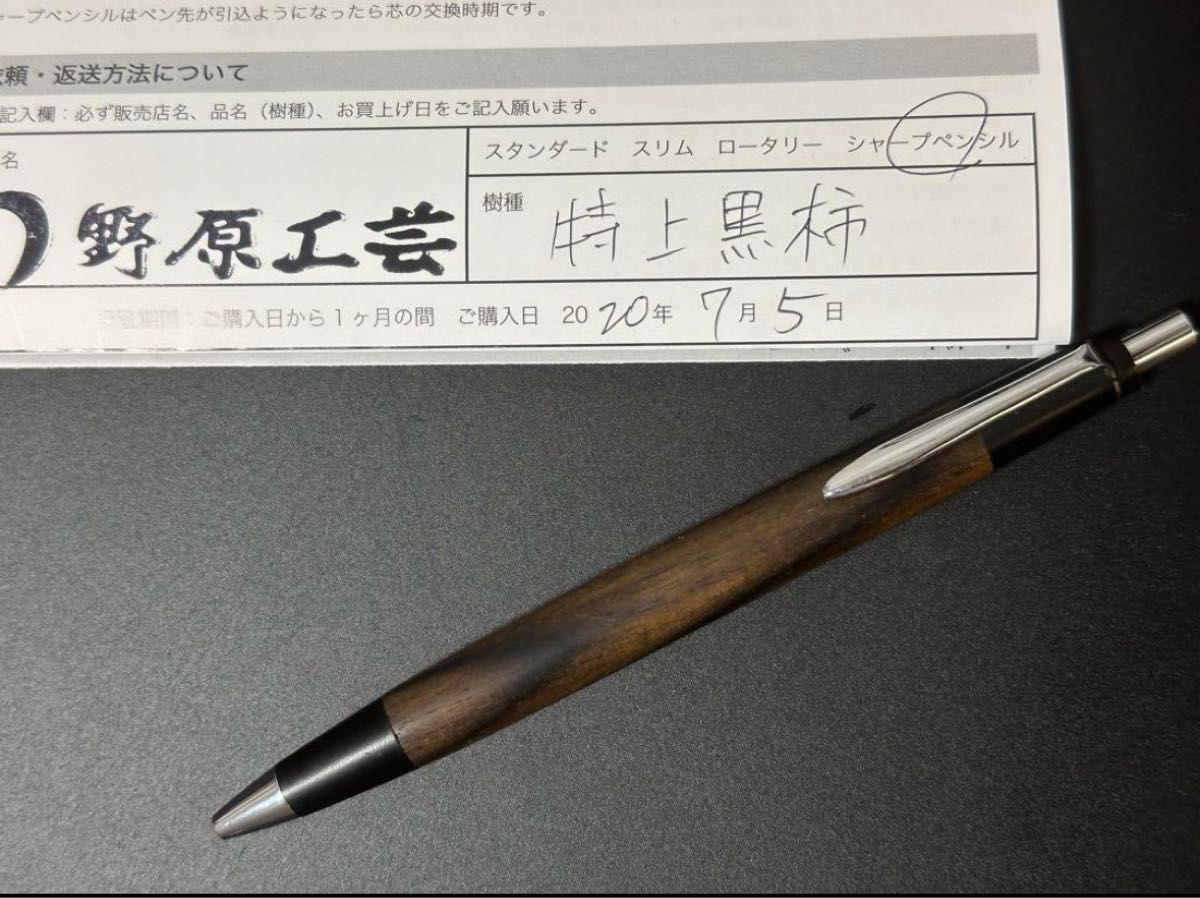 ープペンシルはペン先が引込ようになったら芯の交換時期です。
頼・返送方法について
記入欄：必ず販売店名、品名（樹種）、お買上げ日をご記入願います。
名
スタンダード スリム ロータリー シャープペンシル
野原工芸
樹種 特上黒柿
期間：ご購入日から1ヶ月の間 ご購入日 2020年 7月5日